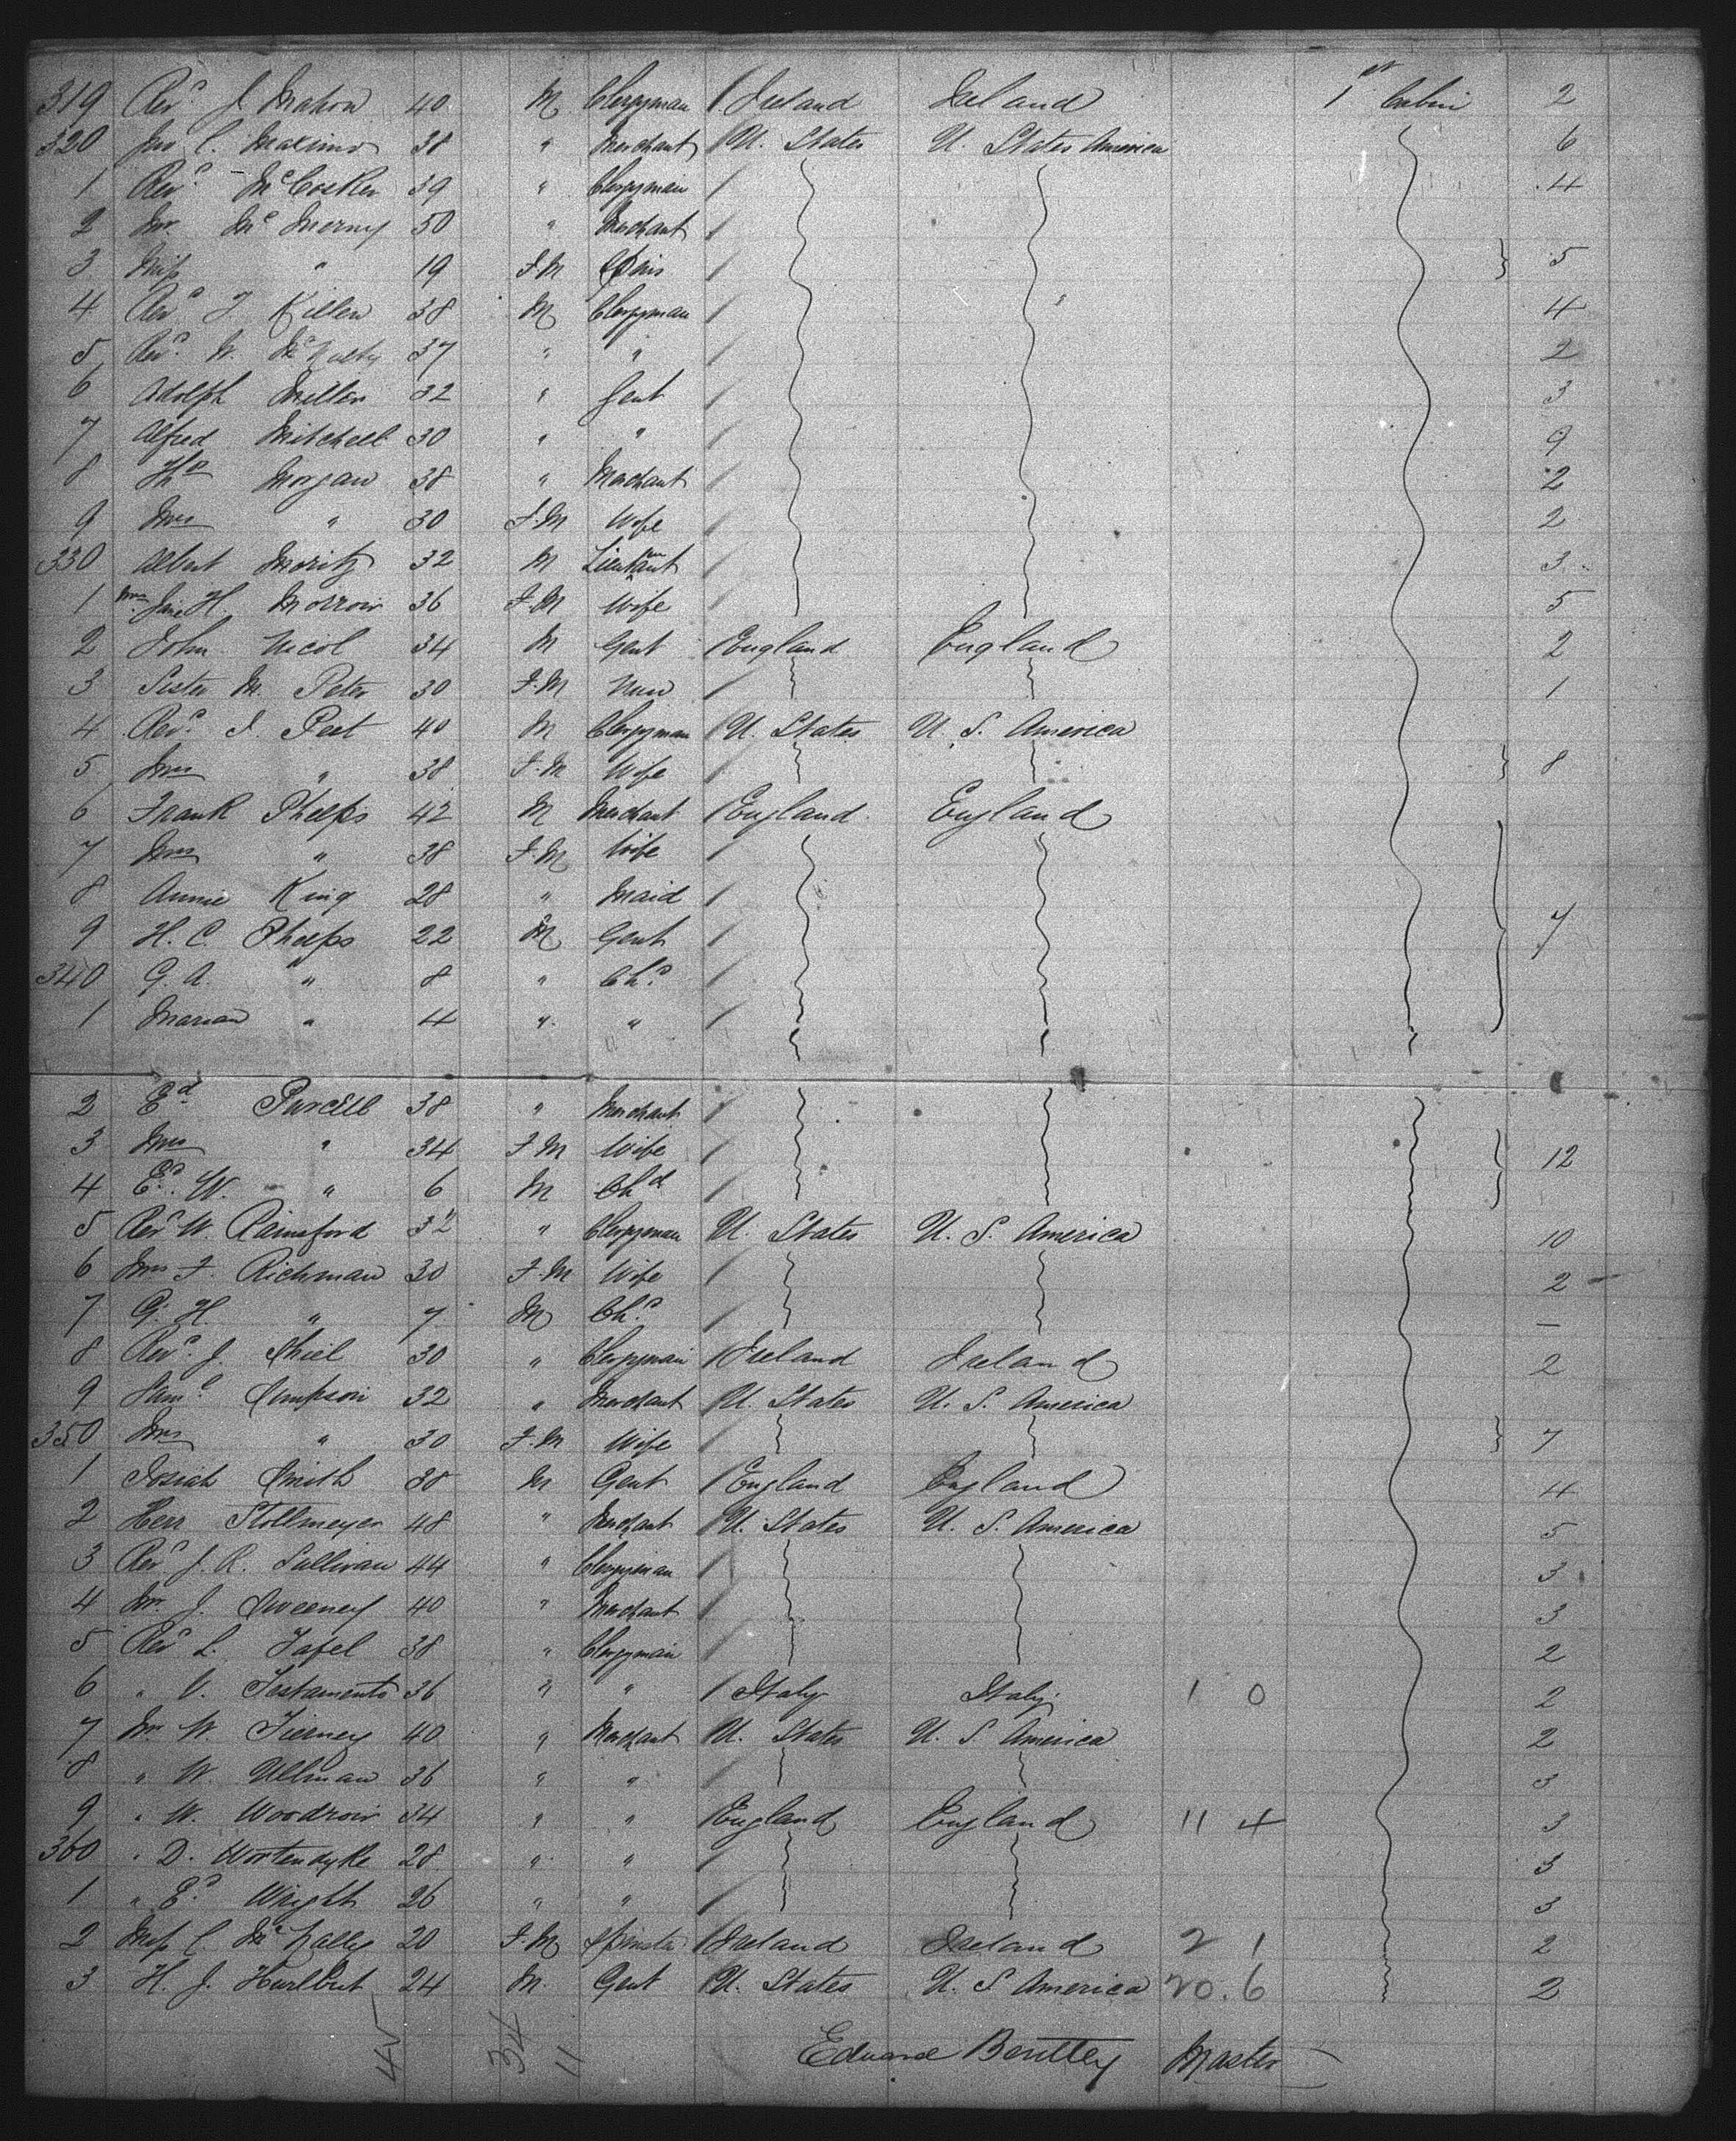 319 Revd. J. Mahon 40 M Clergyman / Ireland Ireland 1st Cabin 2
320 Jno C. Maximo 38 " Merchant / U. States U. States America 6
1 Revd. McCosker 39 " Clergyman / 4
2 Mr. Mc 50 " Merchant /
3 Miss " 19 F.M Spins / 5
4 Revd. J Killen 38 M Clergyman / " 4
5 Revd. W. McNulty 37 " " / 2
6 Adolph Miller 32 " Gent / 3
7 Alfred Mitchell 30 " " / 9
8 Morgan 38 " Merchant / 2
9 Mrs " 30 F.M Wife / 2
330 Albert Moritz 32 M Lieutenant / 3
1 Mrs. Jane H. Morrow 36 F.M Wife / 5
2 John Nicol 34 M Gent / England England 2
3 Sister M. Peter 30 F.M Nun / 1
4 Revd. J. Peet 40 M Clergyman / U. States U. S. America
5 Mrs " 38 F.M Wife / 8
6 Frank Phelps 42 M Merchant / England England
7 Mrs " 38 F.M Wife /
8 Annie King 28 " Maid /
9 H. C. Phelps 22 M Gent / 7
340 G. A. " 8 " Chd. /
1 Marian " 4 " " /
2 Ed. Purcell 38 " Merchant /
3 Mrs " 34 F M Wife / 12
4 Ed. W. " 6 M Chd /
5 Revd W. Rainsford 32 " Clergyman U. States U. S. America 10
6 Mrs F. Richman 30 F.M Wife / 2
7 G. H. " 7 M Chd. / –
8 Revd. J. Shiel 30 " Clergyman / Ireland Ireland 2
9 Saml. Simpson 32 " Merchant / U. States U. S. America
350 Mrs " 30 F.M Wife / 7
1 Josiah Smith 38 M Gent / England England 4
2 Herr Stollmeyer 48 " Merchant / U. States U. S. America 5
3 Revd J. R. Sullivan 44 " Clergyman / 3
4 Mr. J. Sweeney 40 " Merchant / 3
5 Revd L. Tafel 38 " Clergyman / 2
6 " V. Testamento 36 " " / Italy Italy 1 0 2
7 Mr W. Tierney 40 " Merchant / U. States U. S America 2
8 " W. Ullman 36 " " / 3
9 " W. Woodrow 34 " " / England England 11 4 3
360 " D. Wortendyke 28 " " / 3
1 " Ed. Wright 26 " " / 3
2 Miss C. McNally 20 F.M Spinster / Ireland Ireland 2 1 2
3 H. J. Hurlbut 24 M. Gent / U. States U. S America 20.6 2
45 34 11
Edward Bentley Master